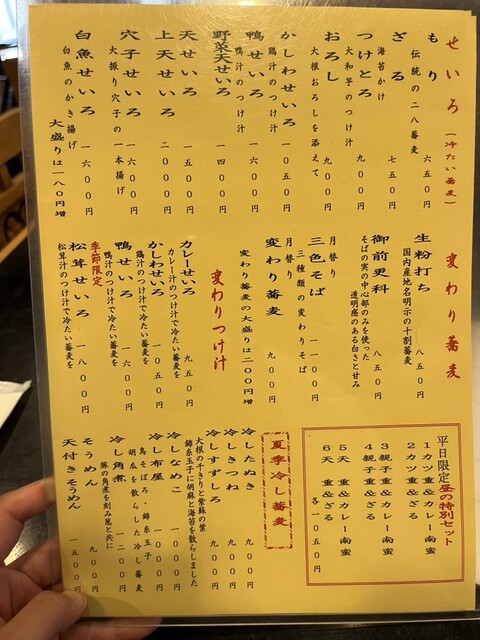 せいろ(冷たい蕎麦)
もり 六五〇円
伝統の二八蕎麦
ざる 七五〇円
海苔かけ
つけとろ 九〇〇円
大和芋のつけ汁
おろし 九〇〇円
大根おろしを添えて
かしわせいろ 一〇五〇円
鶏汁のつけ汁
鴨せいろ 一六〇〇円
鴨汁のつけ汁
野菜天せいろ 一四〇〇円
天せいろ 一五〇〇円
上天せいろ 二〇〇〇円
穴子せいろ 一六〇〇円
大振り穴子の一本揚げ
白魚せいろ 一六〇〇円
白魚のかき揚げ
大盛りは一八〇円増
変わり蕎麦
生粉打ち 八五〇円
国内産地名明示の十割蕎麦
御前更科 八五〇円
そばの実の中心部のみを使った
透明感のある白さと甘み
月替り
三色そば 一一〇〇円
三種類の変わりそば
月替り
変わり蕎麦 九〇〇円
変わり蕎麦の大盛りは二〇〇円増
変わりつけ汁
カレーせいろ 九五〇円
カレー汁のつけ汁で冷たい蕎麦を
かしわせいろ 一〇五〇円
鶏汁のつけ汁で冷たい蕎麦を
鴨せいろ 一六〇〇円
鴨汁のつけ汁で冷たい蕎麦を
季節限定
松茸せいろ 一八〇〇円
松茸汁のつけ汁で冷たい蕎麦を
平日限定昼の特別セット
1カツ重&カレー南蛮
2カツ重&ざる
3親子重&カレー南蛮
4親子重&ざる
5天 重&カレー南蛮
6天 重&ざる
各一〇五〇円
夏季冷し蕎麦
冷したぬき 九〇〇円
冷しきつね 九〇〇円
冷しすずしろ 九〇〇円
大根の千ぎりと紫蘇の葉
錦糸玉子に胡麻と海苔を散らしました
冷しなめこ 一一〇〇円
冷し布屋 一一〇〇円
鳥そぼろ・錦糸玉子
胡瓜を散らした冷し蕎麦
冷し角煮 一二〇〇円
豚の角煮を刻み葱と共に
そうめん 九〇〇円
天付きそうめん 一五〇〇円